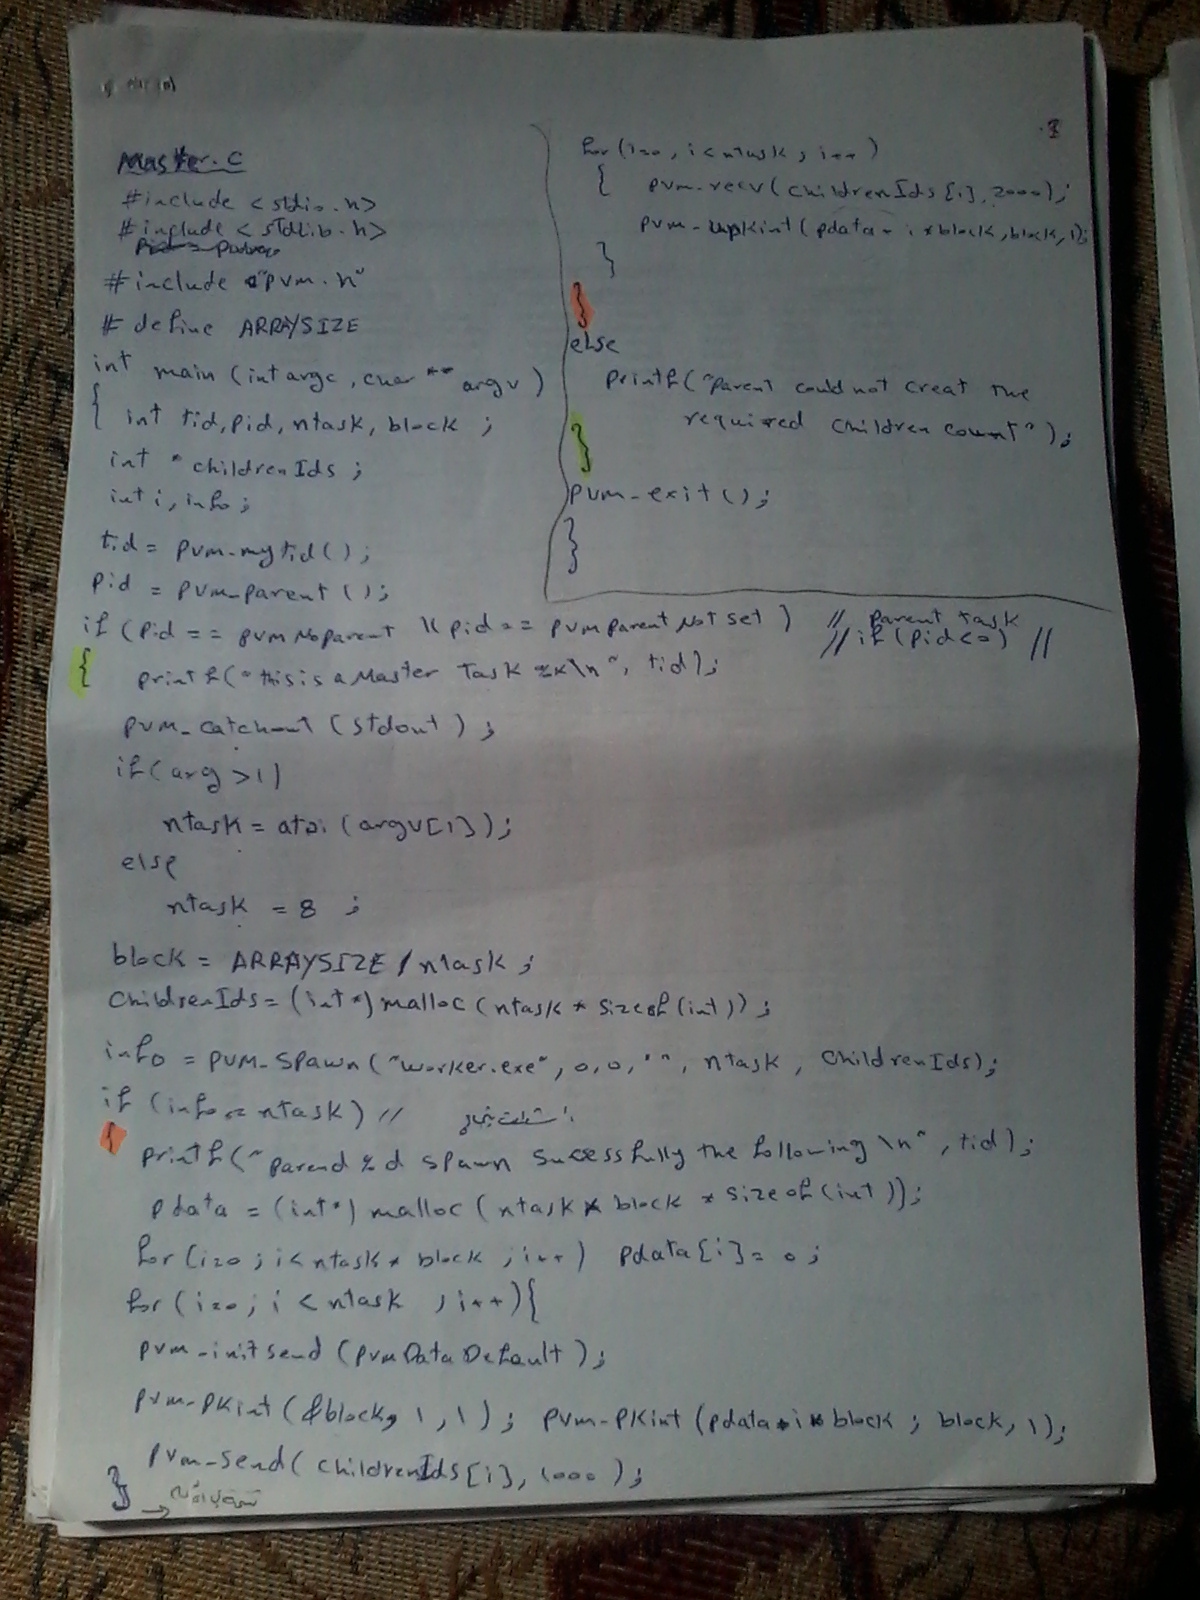 Master.c
#include <stdio.h>
#include <stdlib.h>
#include "pvm.h"
# define ARRAYSIZE
int main (int argc, char ** argv)
{ int tid, pid, ntask, block ;
int * childrenIds ;
int i, info ;
tid = pvm-mytid();
pid = pvm-parent();
if (pid == pvmNoparent || pid == pvmparentNotset ) // parent task
// if (pid<0) //
{ printf("this is a Master Task %x\n", tid);
pvm_catchout (stdout) ;
if (arg >1)
ntask = atoi (argv[1]);
else
ntask = 8 ;
block = ARRAYSIZE / ntask ;
childrenIds = (int*) malloc (ntask * sizeof (int));
info = pvm-spawn("worker.exe", 0,0,"", ntask, childrenIds);
if (info == ntask) //
{ printf("parend %d spawn sucessfully the following \n", tid);
pdata = (int*) malloc (ntask * block * sizeof(int));
for (i=0 ; i< ntask * block ; i++) pdata[i] = 0 ;
for (i=0; i < ntask ; i++){
pvm-initsend (pvmDataDefault);
pvm-pkint (&block, 1, 1); pvm-pkint (pdata+i* block ; block, 1);
pvm-send( childrenIds[i], 1000 );
}
for (i=0, i<ntask ; i++)
{ pvm-recv(childrenIds[i], 2000);
pvm-upkint (pdata + i * block, block, 1);
}
}
else
printf("parent could not creat the
required children count");
}
pvm-exit();
}